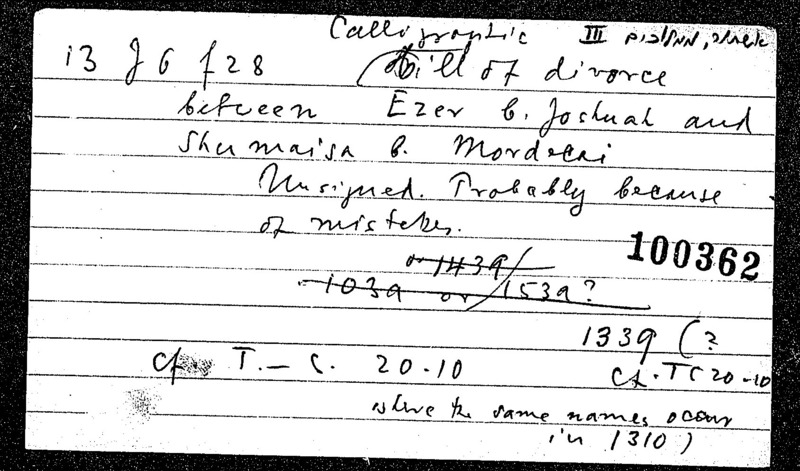 Calligraphic III
13 J 6 f 28 Bill of divorce
between Ezer b. Joshuah and
Shumaisa b. Mordecai
Unsigned. Probably because
of mistakes.
100362
or 1439
1039 or 1539?
1339 (?
cf. T.-S. 20.10 cf. TS 20.10
where the same names occur
in 1310)